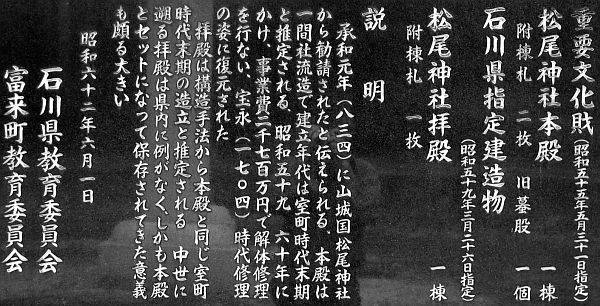 重要文化財（昭和五十五年五月三十一日指定）
松尾神社本殿　一棟
附棟札　二枚　旧蟇股　一個
石川県指定建造物
（昭和五十九年三月二十六日指定）
松尾神社拝殿　一棟
附棟札　一枚
説　明
承和元年（八三四）に山城国松尾神社
から勧請されたと伝えられる。本殿は
一間社流造で建立年代は室町時代末期
と推定される。昭和五十九　六十年に
かけ、事業費二千七百万円で解体修理
を行ない、宝永（一七〇四）時代修理
の姿に復元された
拝殿は構造手法から本殿と同じ室町
時代末期の造立と推定される　中世に
遡る拝殿は県内に例がなく、しかも本殿
とセットになって保存されてきた意義
も頗る大きい
昭和六十二年六月一日
石川県教育委員会
富来町教育委員会